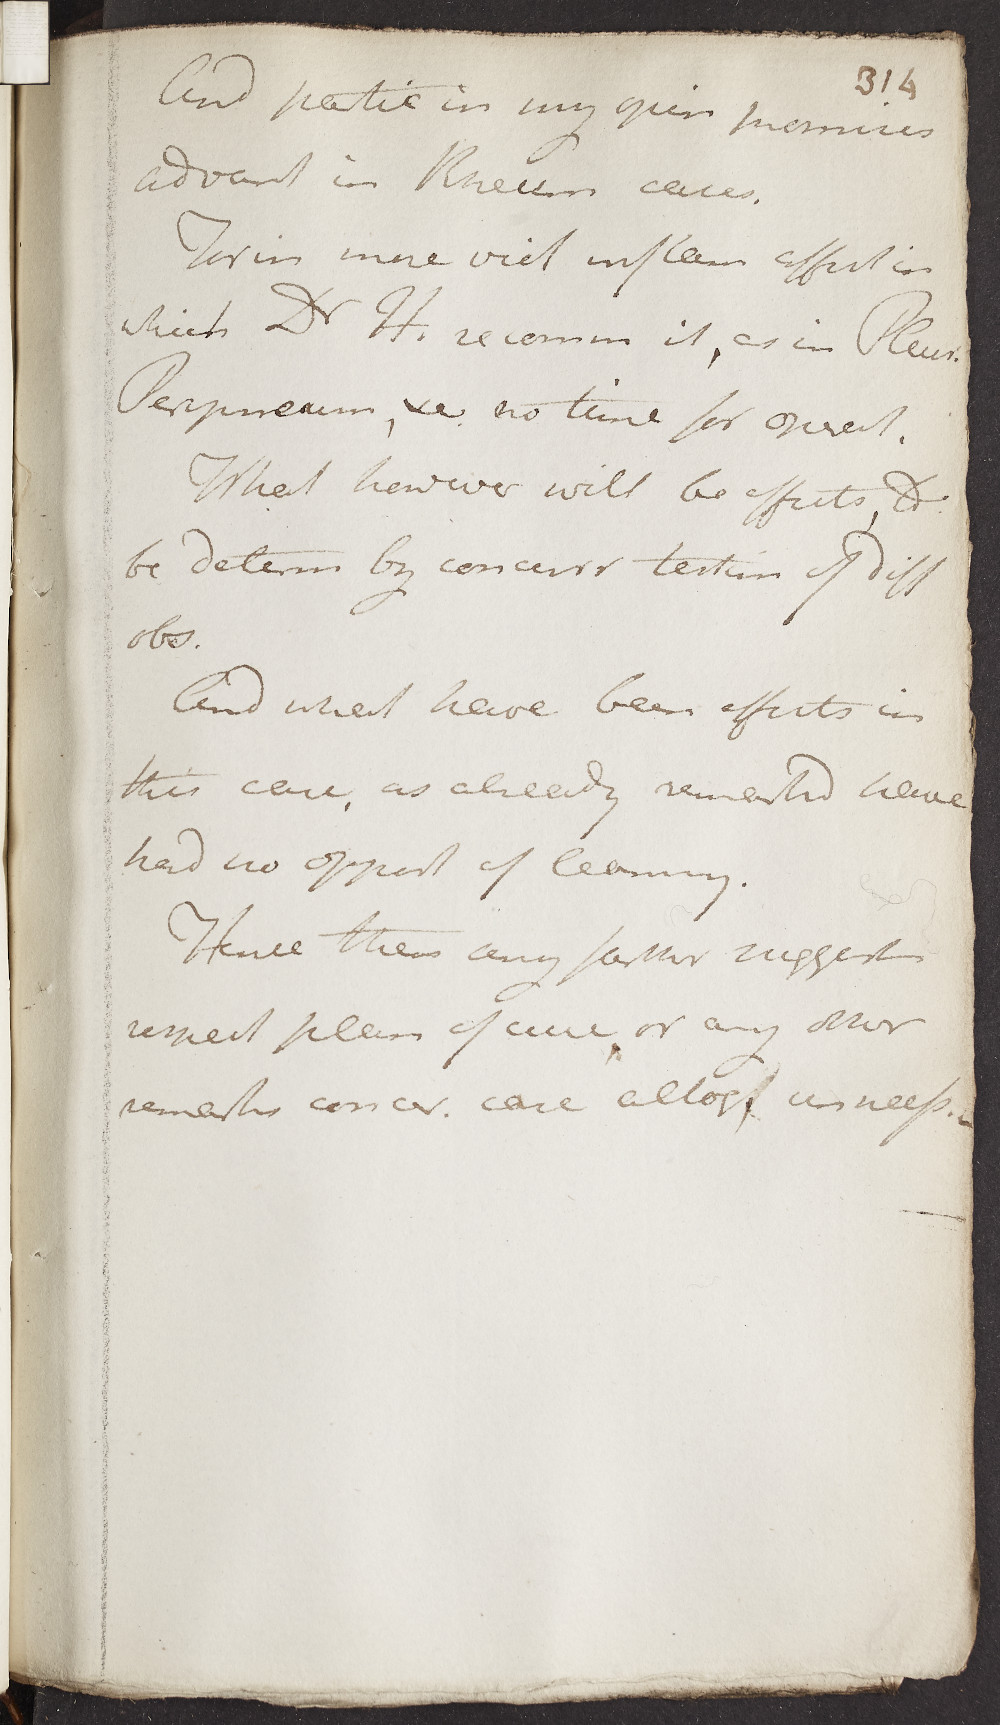 314
And partic in my opin promises
advant in Rheum cases.
For in more viol inflam affect in
which Dr H. recomm it, as in Pleur.
Peripneum, &c. no time for operat.
What however will be effects,
be determ by concurr testim of diff
obs.
And what have been effects in
this case, as already remarkd have
had no opport of learning.
Hence then any farther suggest
respect plan of cure, or any other
remarks concer. case altog unness.